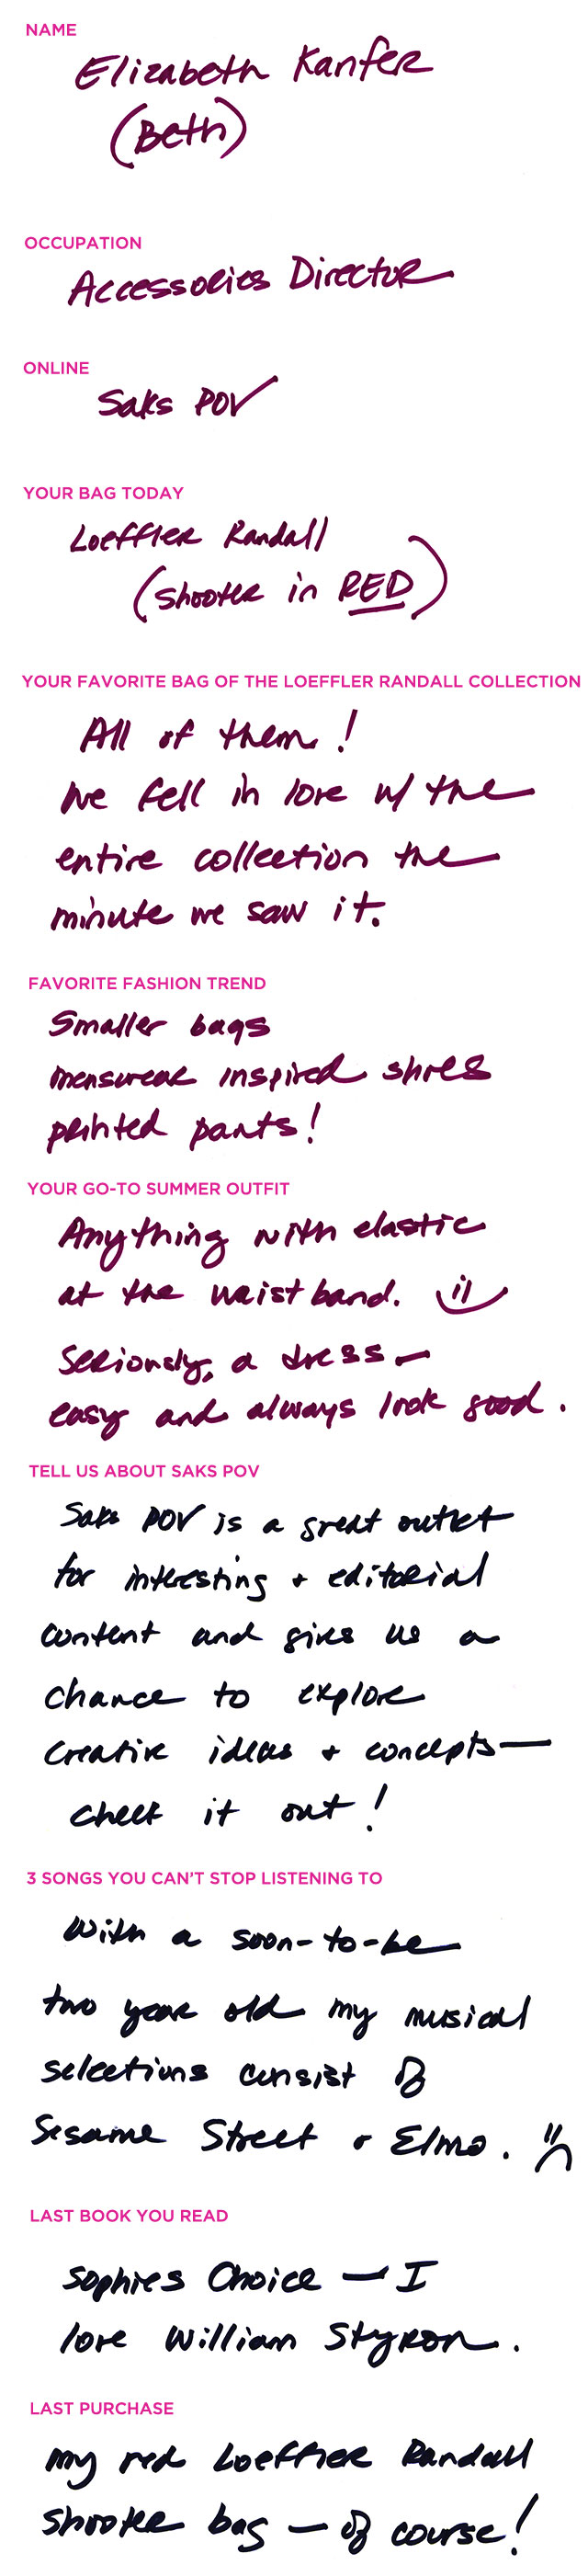 NAME
Elizabeth Kanfer
(Beth)
OCCUPATION
Accessories Director
ONLINE
Saks POV
YOUR BAG TODAY
Loeffler Randall
(Shooter in RED)
YOUR FAVORITE BAG OF THE LOEFFLER RANDALL COLLECTION
All of them!
We fell in love w/ the
entire collection the
minute we saw it.
FAVORITE FASHION TREND
Smaller bags
menswear inspired shoes
printed pants!
YOUR GO-TO SUMMER OUTFIT
Anything with elastic
at the waist band. :)
Seriously, a dress —
easy and always look good.
TELL US ABOUT SAKS POV
Saks POV is a great outlet
for interesting + editorial
content and gives us a
chance to explore
creative ideas + concepts —
check it out!
3 SONGS YOU CAN'T STOP LISTENING TO
With a soon-to-be
two year old my musical
selections consist of
Sesame Street + Elmo. :(
LAST BOOK YOU READ
Sophies Choice — I
love William Styron.
LAST PURCHASE
my red Loeffler Randall
shooter bag — of course!